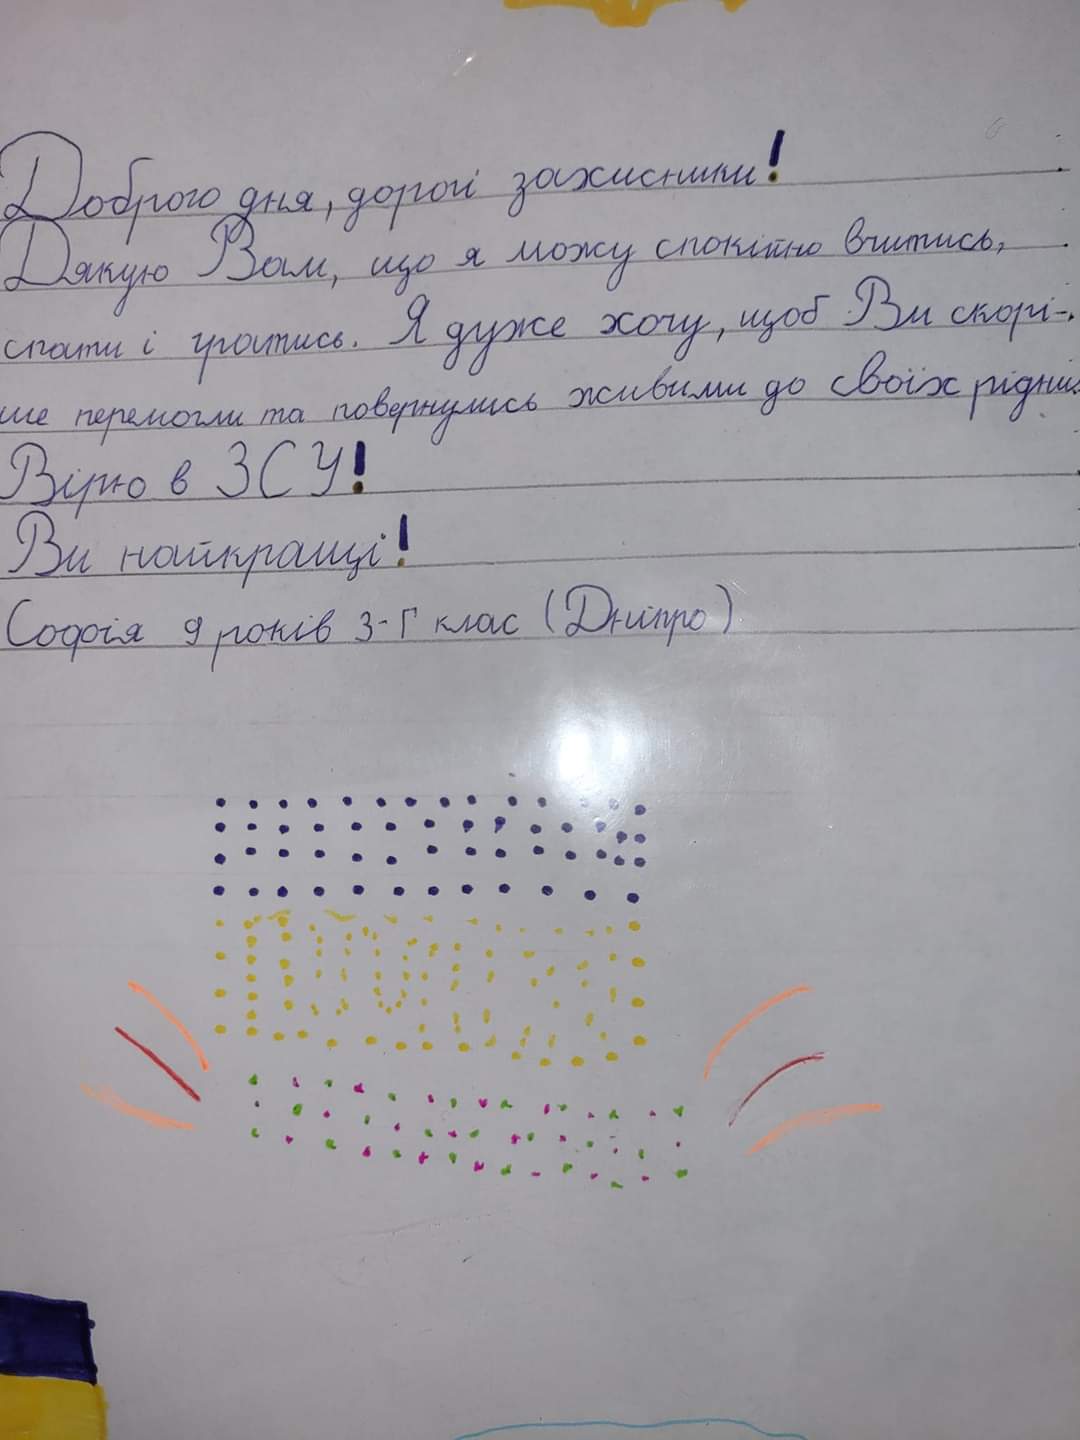 Доброго дня, дорогі захисники!
Дякую Вам, що я можу спокійно вчитись,
спати і гратись. Я дуже хочу, щоб Ви скорі-
ше перемогли та повернулись живими до своїх рідних
Вірю в ЗСУ!
Ви найкращі!
Софія 9 років 3-Г клас (Дніпро)